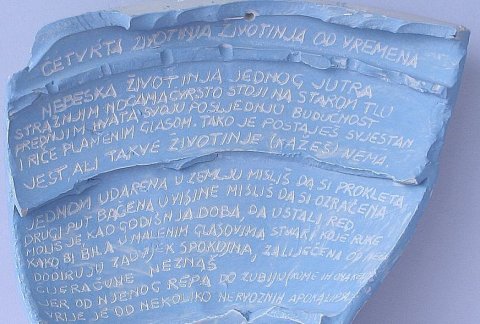 ČETVRTA ŽIVOTINJA ŽIVOTINJA OD VREMENA
NEBESKA ŽIVOTINJA JEDNOG JUTRA
STRAŽNJIM NOGAMA ČVRSTO STOJI NA STAROM TLU
PREDNJIM HVATA SVOJU POSLJEDNJU BUDUĆNOST
I RIČE PLAMENIM GLASOM. TAKO JE POSTAJEŠ SVJESTAN
JEST, ALI TAKVE ŽIVOTINJE (KAŽEŠ) NEMA.
JEDNOM UDARENA U ZEMLJU MISLIŠ DA SI PROKLETA,
DRUGI PUT BAČENA U VISINE MISLIŠ DA SI OZRAČENA
MOLIŠ JE, KAO GODIŠNJA DOBA, DA USTALI RED,
KAKO BI BILA U MALENIM GLASOVIMA STVARI KOJE RUKE
DODIRUJU ZADATAK SPOKOJNA, ZALIJEČENA OD
ČIJE RAČUNE NEZNAŠ
JER OD NJENOG REPA DO ZUBIJU
VRIJE JE OD NEKOLIKO NERVOZNIH APOKALIPSA